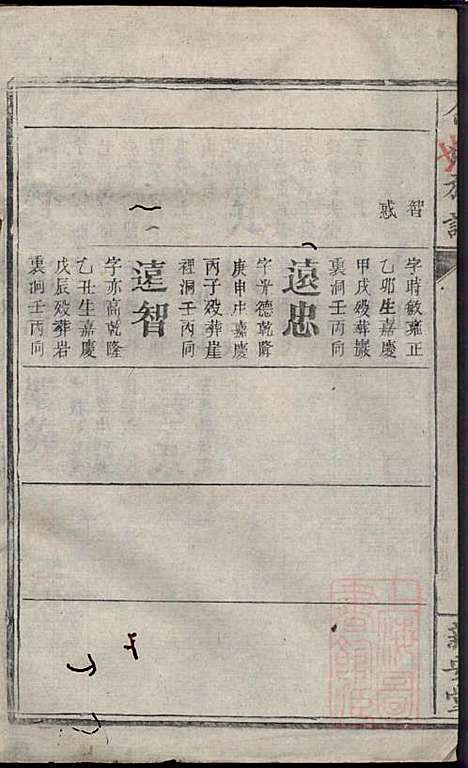 族譜
智
惑
字時敏雍正
乙卯生嘉慶
甲戌歿葬巖
裏洞壬丙向
遠忠
字光德乾隆
庚申生嘉慶
丙子歿葬崖
裡洞壬丙向
遠智
字亦高乾隆
乙丑生嘉慶
戊辰歿葬岩
裏洞壬丙向